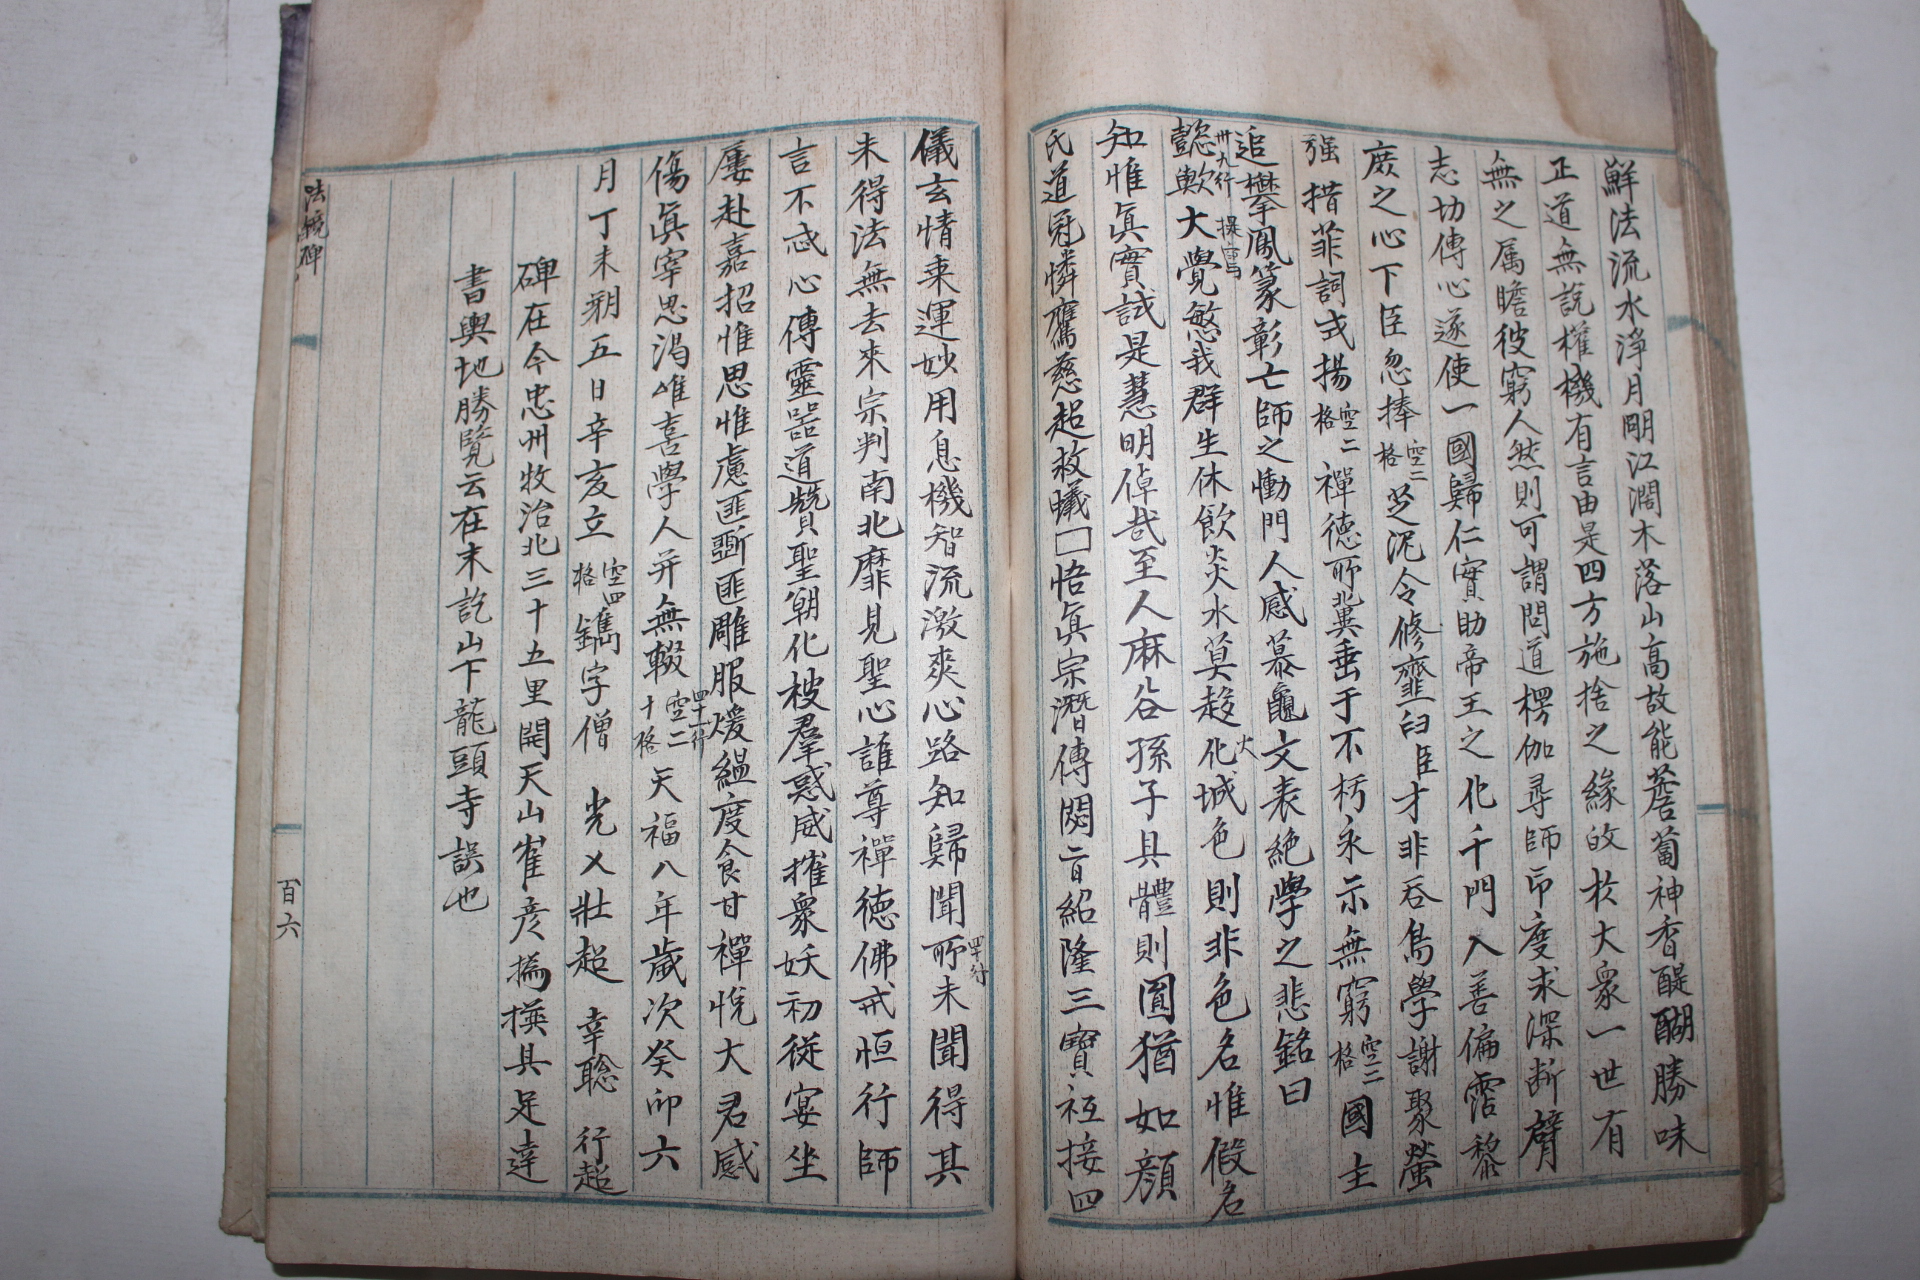 鮮法流水淨月剛江濶木落山高故能薝蔔神香醍醐勝味
正道無說權機有言由是四方施捨之緣皈於大衆一世有
無之属瞻彼窮人然則可謂問道楞伽尋師印度求深斷臂
志切傳心遂使一國歸仁實助帝王之化千門入善偏霑黎
庶之心下臣忽捧空二格芝泥令修虀臼臣才非呑鳥學謝聚螢
强措菲詞式揚空二格禪德所冀垂于不朽永示無窮空二格國主
追攀鳳篆彰亡師之慟門人感慕龜文表絶學之悲銘曰
卅九行懿歟大覺慜我群生休飮炎水莫趍化城色則非色名惟假名
知惟眞實試是慧明倬哉至人麻谷孫子具體則圓猶如顔
氏道冠憐鷹慈超救蟻□悟眞宗潛傳閟旨紹隆三寶祗接四
儀玄情乗運妙用息機智流激爽心路知歸聞所未聞得其
四十行
未得法無去來宗判南北靡見聖心誰尊禪德佛戒恒行師
言不忒心傳靈器道贊聖朝化被羣惑威摧衆妖初從宴坐
屢赴嘉招惟思惟慮匪斲匪雕服煖縕度食甘禪悅大君感
傷眞宰思渴唯喜學人并無輟四十一行空二十格天福八年歲次癸卯六
月丁未朔五日辛亥立空四格鐫字僧 光乂壯超 幸聡 行超
碑在今忠州牧治北三十五里開天山崔彦撝撰具足達
書輿地勝覽云在末訖山下龍頭寺誤也
法鏡碑
百六